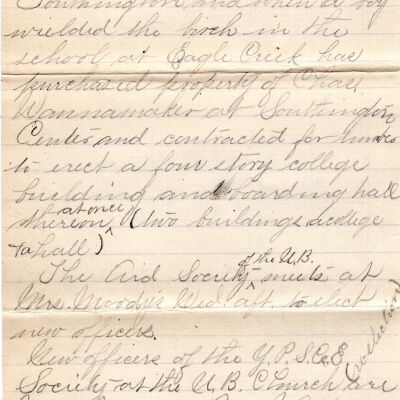 Southington, and when a boy
wielded the birch in the
school at Eagle Creek has
purchased property of Chas.
Wannamaker at Southington
Center and contracted for
to erect a four story college
building and boarding hall
thereon, at once (two buildings a college
& a hall)
The Aid Society of the U.B. meets at
Mrs. Moody's Wed. aft. to elect
new officers.
New officers of the Y.P.S.C.E.
Society at the U.B. Church are